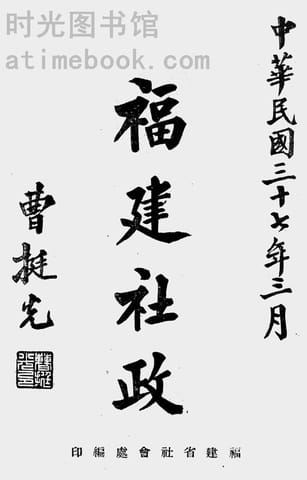 时光图书馆
atimebook.com
中華民國三十七年三月
福建社政
曹挺光
福建省社會處編印